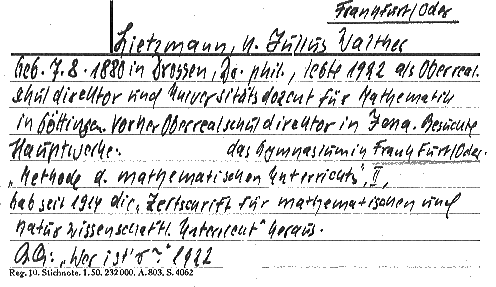 Frankfurt/Oder
Lietzmann, K. Julius Walther
Geb. 7.8.1880 in Drossen, Dr. phil., lebte 1922 als Oberreal-
schuldirektor und Universitätsdozent für Mathematik
in Göttingen. Vorher Oberrealschuldirektor in Jena. Besuchte
Hauptwerke: das Gymnasium in Frankfurt/Oder.
„Methode d. mathematischen Unterrichts", II,
hab seit 1914 die „Zeitschrift für mathematischen und
naturwissenschaftl. Unterricht" heraus.
"Wer ist's?" 1922
Reg. 10. Stichnote. 1. 50. 232 000. A. 803. S. 4062